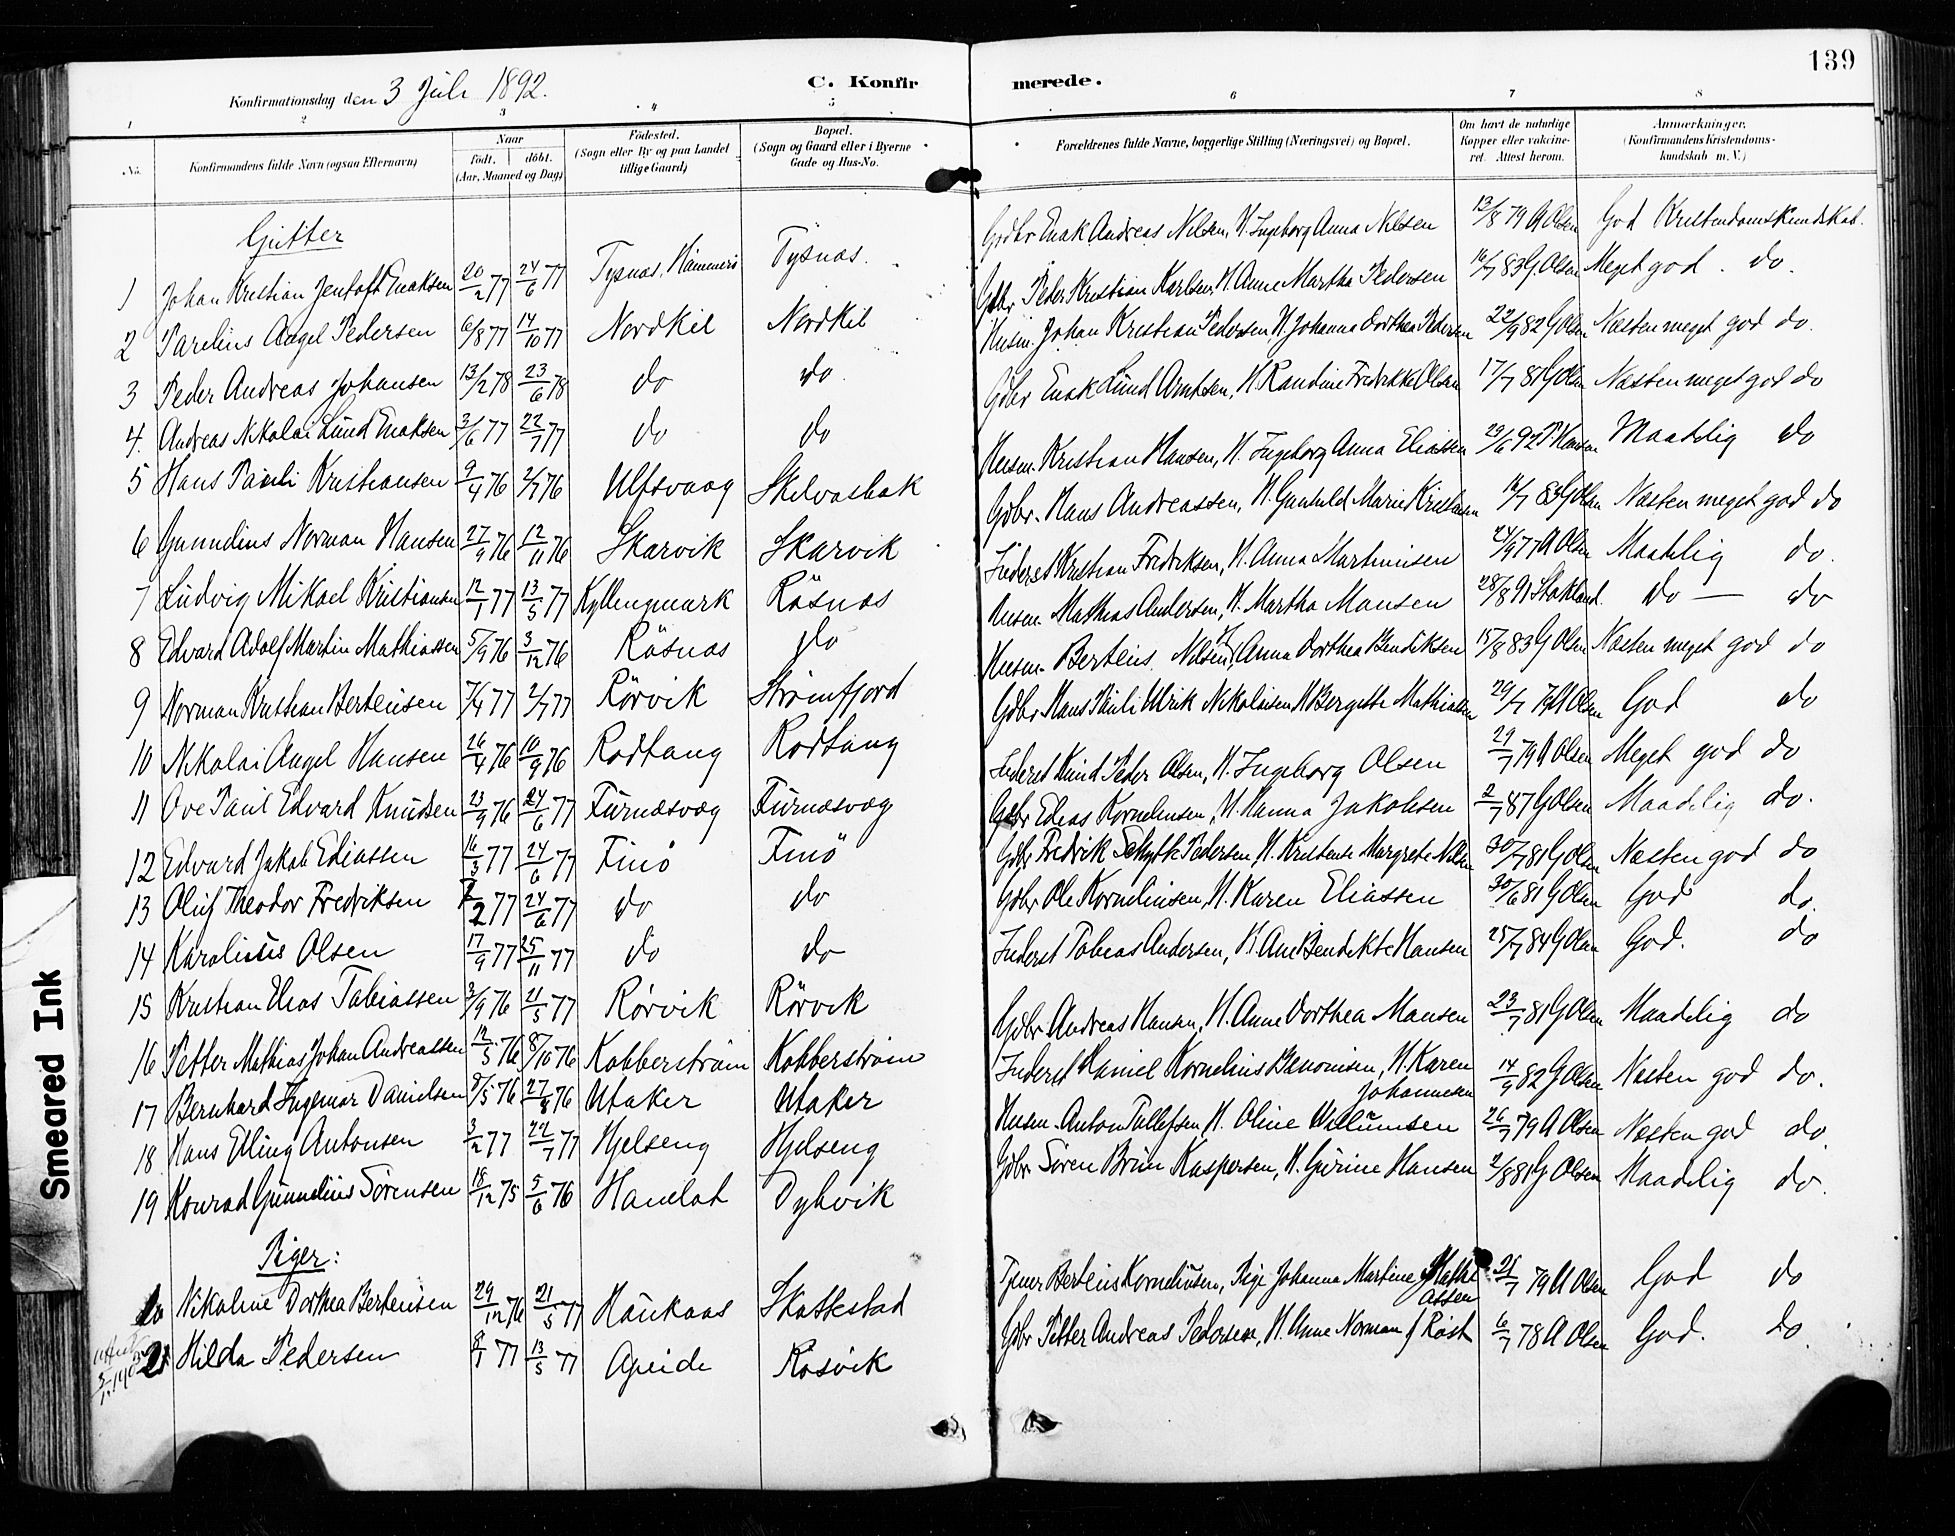 139
C. Konfirmerede.
Konfirmationsdag den 3 Juli 1892.
1 2 3 4 5 6 7 8
No. Konfirmandens fulde Navn (ogsaa Efternavn) Naar født. døbt. (Aar, Maaned og Dag) Fødested. (Sogn eller By og paa Landet tillige Gaard) Bopæl. (Sogn og Gaard eller i Byerne Gade og Hus-No. Forældrenes fulde Navne, borgerlige Stilling (Næringsvei) og Bopæl. Om havt de naturlige Kopper eller vakcineret. Attest herom. Anmærkninger. (Konfirmandens Kristendomskundskab m. V.)
Gutter
1 Johan Kristian Jentoft Enaksen 20/2 77 24/6 77 Tysnæs, Hammerö Tysnæs. Gdbr Enak Andreas Nilsen, H. Ingeborg Anna Nilsen 13/8 79 A Olsen God Kristendomskundskab.
2 Parelius Angel Pedersen 6/8 77 14/10 77 Nordkil Nordkil Gdbr. Peder Kristian Karlsen, H. Anne Martha Pedersen 16/7 83 G Olsen Meget god do.
3 Peder Andreas Johansen 13/2 78 23/6 78 do do. Husm. Johan Kristian Pedersen, H. Johanna Dorthea Pedersen 22/9 82 G Olsen Næsten meget god do.
4. Andreas Nikolai Lund Enaksen 3/6 77 22/7 77 do do Gdbr Enak Lund Arntsen, H. Randine Fredrikke Olsen 17/7 81 G Olsen Næsten meget god do
5 Hans Pauli Kristiansen 9/4 76 2/7 76 Ulfsvaag Skilvasbak Husm. Kristian Hansen, H. Ingeborg Anna Eliassen 29/6 92 P Hansen Maadelig do
6 Gunndius Norman Hansen 27/9 76 12/11 76 Skarvik Skarvik Gdbr. Hans Andreassen, H. Gunhild Marie Kristensen 16/7 83 G Olsen Næsten meget god do
7 Ludvig Mikael Kristiansen 12/1 77 13/5 77 Kyllengmark Räsnæs Inderst Kristian Fredriksen, H. Anna Martinusen 24/9 77 A Olsen Maadelig do.
8 Edvard Adolf Martin Mathiassen 5/9 76 3/12 76 Räsnæs do Husm. Mathias Andersen, H. Martha Monsen 28/8 91 Stokland. do — do
9 Norman Kristian Berteusen 7/4 77 2/7 77 Rørvik Strømfjord Husm. Berteus Nilsen, H. Anna Dorthea Bendiksen 15/8 83 G Olsen Næsten meget god do
10 Nikolai Angel Hansen 26/4 76 10/9 76 Rodtang Rodtang Gdbr Hans Pauli Ulrik Nikolaisen, H. Bergitte Mathiassen 29/7 79 A Olsen God do
11 Ove Paul Edvard Knudsen 23/9 76 24/6 77 Furnæsvæg Furnæsvæg Inderst Knud Peder Olsen, H. Ingeborg Olsen 29/7 79 A Olsen Meget god do
12 Edvard Jakob Ediassen 16/3 77 24/6 77 Finö Finö Gdbr Edias Kornelensen, H. Hanna Jakobsen 2/7 87 G Olsen Maadelig do.
13 Oluf Theodor Fredriksen 2 77 24/6 77 do do Gdbr Fredrik Schytte Pedersen, H. Kristense Margrete Nilsen 30/7 81 G Olsen Næsten god do
14 Karolius Olsen 17/9 77 25/11 77 do do Gdbr Ole Kornelensen, H. Karen Eliassen 30/6 81 G Olsen God do.
15 Kristian Elias Tobiassen 3/9 76 21/5 77 Rørvik Rörvik Inderst Tobias Andersen, H. Ane Bendikte Hansen 25/7 84 G Olsen God. do
16 Petter Mathias Johan Andreassen 12/5 76 8/10 76 Kobberström Kobberström Gdbr Andreas Hansen, H. Anne Dorthea Monsen 23/7 81 G Olsen Maadelig do
17 Bernhard Ingemar Danielsen 8/5 76 27/8 76 Utaker Utaker Inderst Daniel Kornelius Benonisen, H. Karen Johannesen 14/9 82 G Olsen Næsten god do.
18 Hans Elling Antonsen 3/2 77 22/7 77 Hjelseng Hjelseng Husm. Anton Tollefsen H. Oline Willumsen 26/7 79 A Olsen Næsten god do.
19 Konrad Gunnelius Sørensen 18/12 75 5/6 76 Hamlot Dybvik Gdbr. Søren Brun Kaspersen, H. Gurine Hansen 2/8 81 G Olsen Maadelig do.
Piger:
20 Nikoline Dorthea Berteusen 29/12 76 21/5 77 Haukaas Skottestad Tjener Berteus Korneliusen, Pige Johanna Martine Mathiassen 21/7 79 A Olsen God do
21 Hilda Pedersen 8/1 77 13/5 77 Apeide Rosvik Gdbr. Petter Andreas Pedersen, H. Anne Norman f Røst 6/7 78 A Olsen God. do.
Smeared Ink